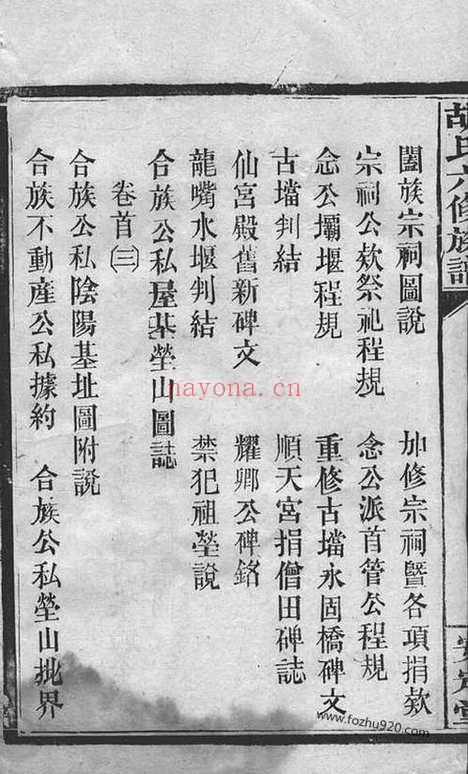 胡氏六修族譜
闔族宗祠圖說　加修宗祠暨各項捐欵
宗祠公欵祭祀程規　念公派首管公程規
念公壩堰程規　重修古壋永固橋碑文
古壋判結　順天宮捐僧田碑誌
仙宮殿舊新碑文　耀卿公碑銘
龍嘴水堰判結　禁犯祖塋說
合族公私屋基塋山圖誌
卷首㈢
合族公私陰陽基址圖附說
合族不動產公私據約　合族公私塋山批界
安定堂
nayona.cn
www.fozhu920.com